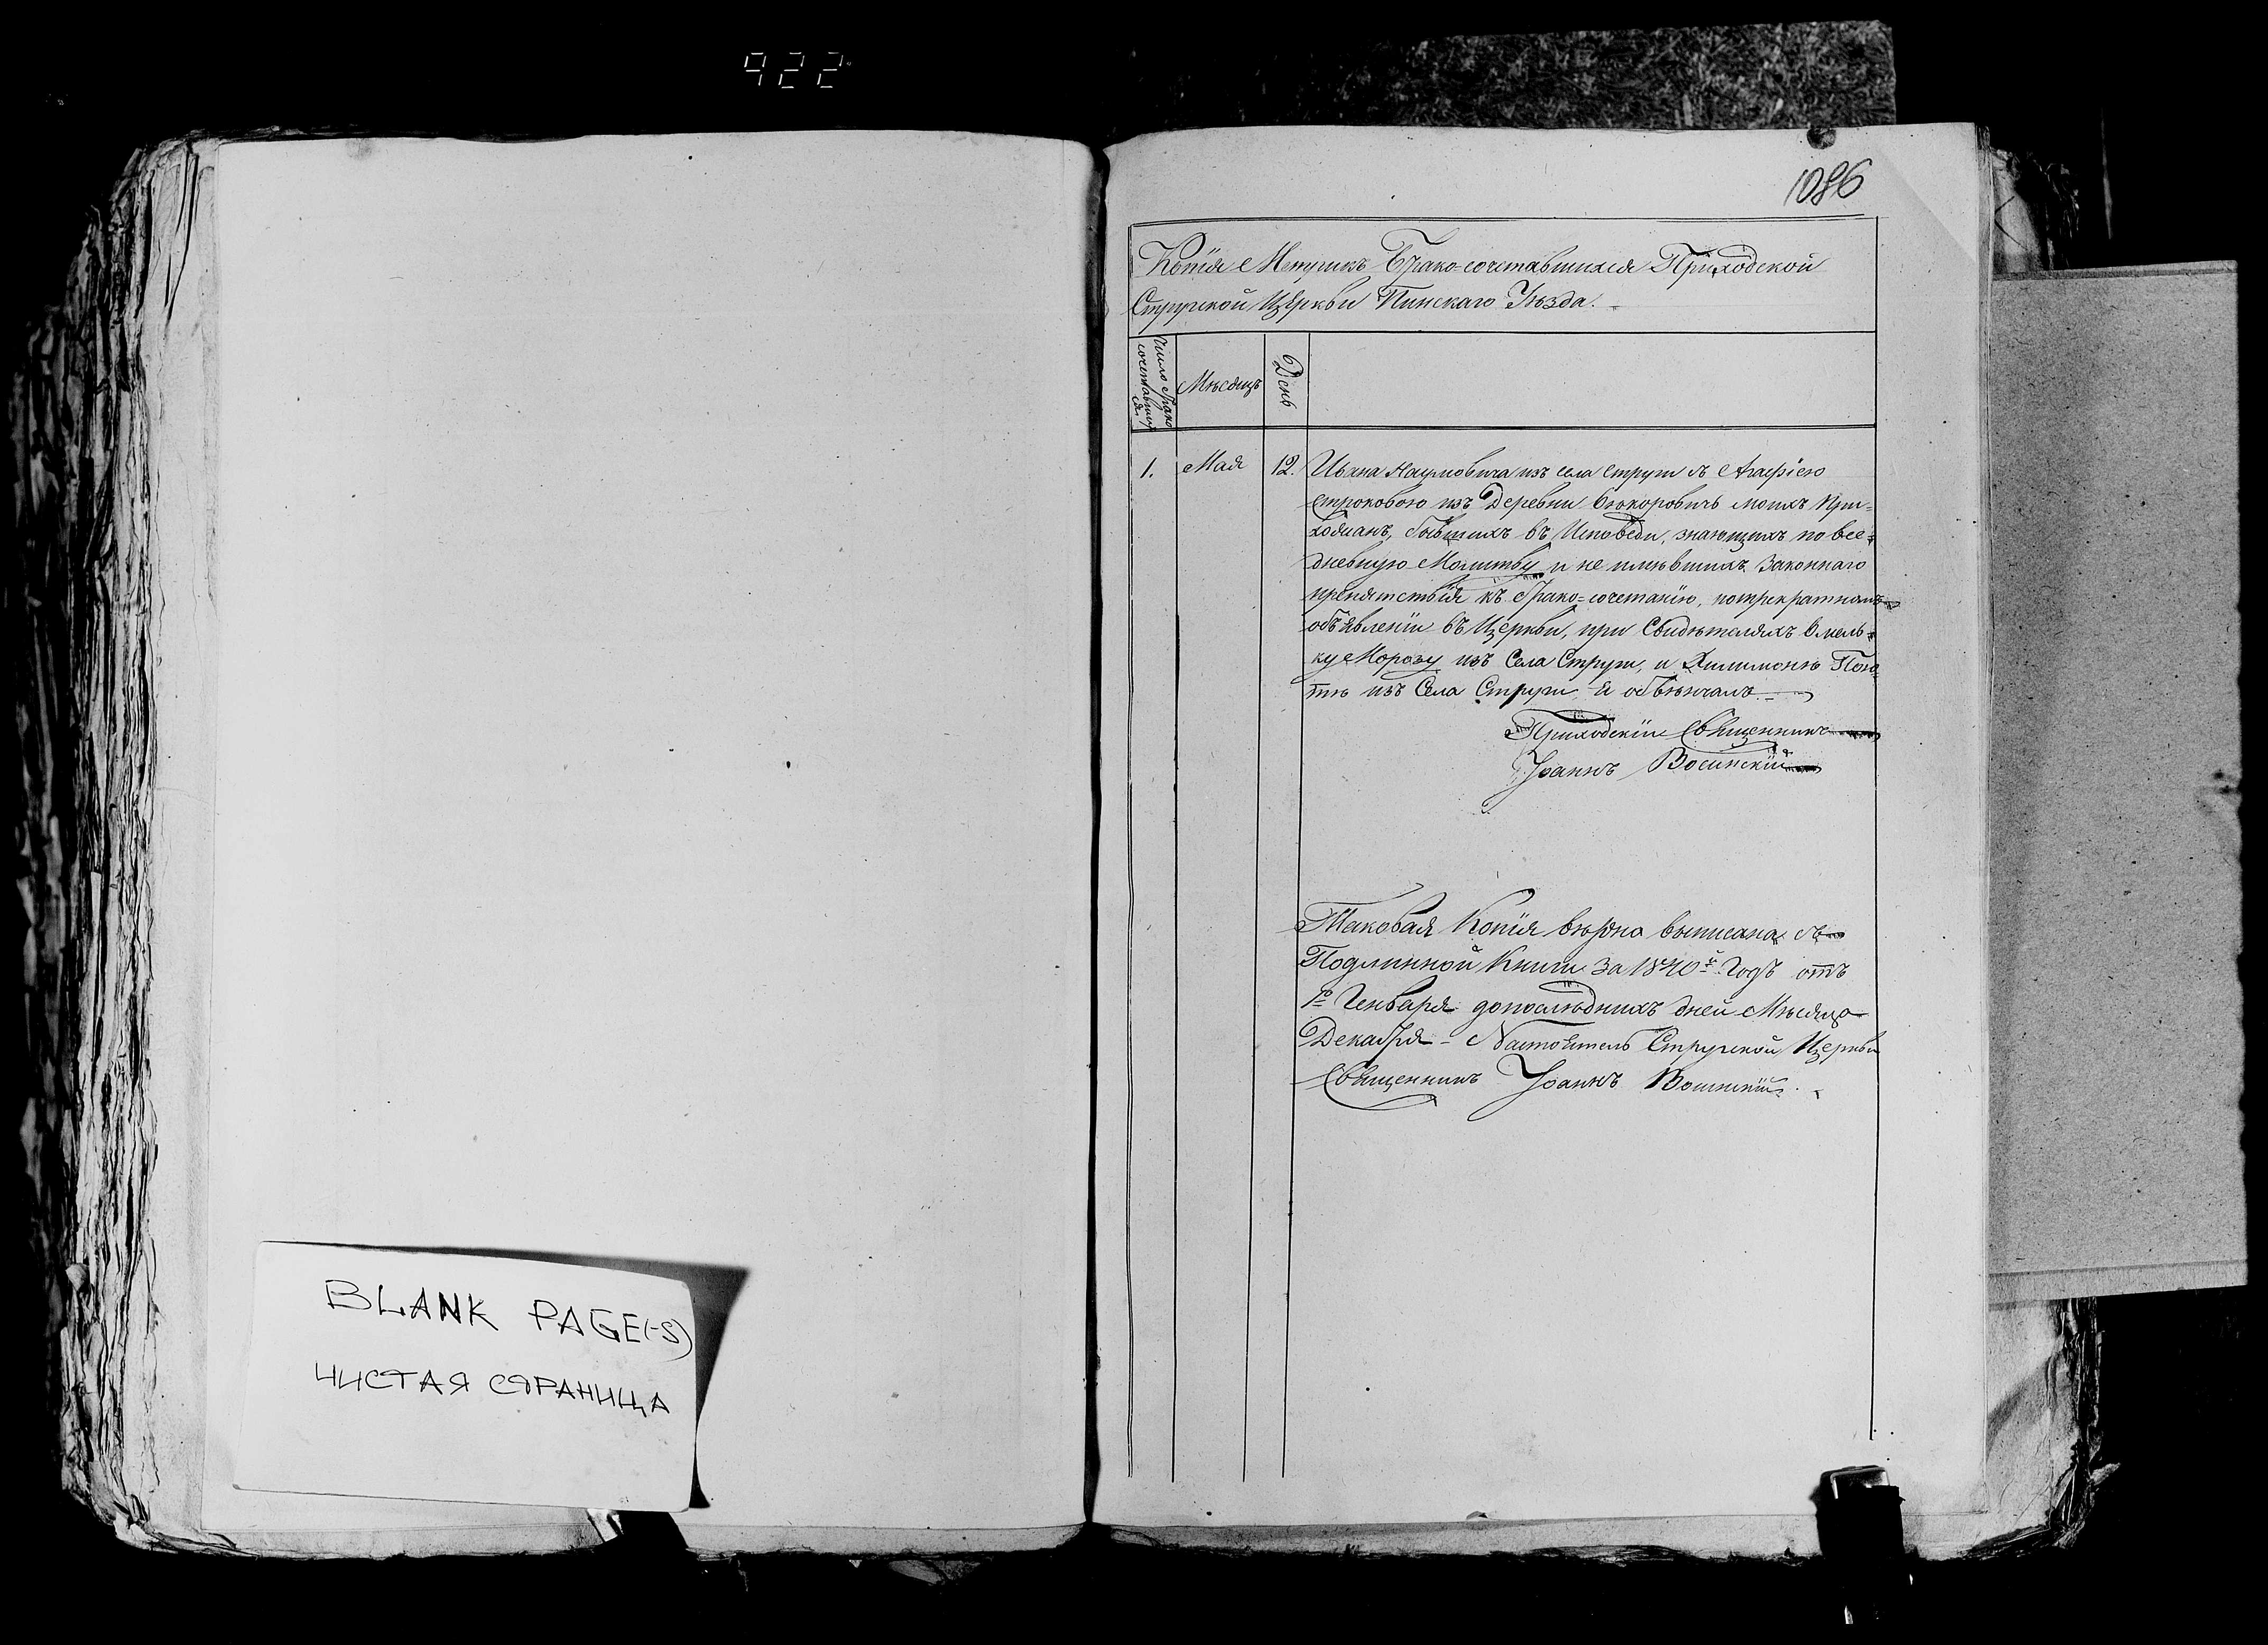 922
1086
Копія Метрикъ Брако-сочетавшихся Приходской
Стругской Церкви Пинскаго Уѣзда.
Число Брако
сочетавших
ся
Мѣсяцъ
День
1. Мая 12. Ивана Наумовича изъ села Струги съ Агафіею
изъ Деревни моихъ При=
хожанъ, бывшихъ въ Исповѣди, знающихъ повсе=
дневную Молитву и не имѣвшихъ Законнаго
препятствія къ Брако=сочетанію, потрекратномъ
объявленіи въ Церкви, при Свидѣтеляхъ Омель=
ку Морозу изъ Села Струги, и Филимонѣ
изъ Села Струги я обвѣнчалъ.
Приходскій Священникъ
Іоаннъ
Таковая Копія вѣрна выписана съ
Подлинной Книги За 1840й Годъ отъ
1го Генваря допослѣднихъ дней Мѣсяца
Декабря - Настоятель Стругской Церкви
Священникъ Іоаннъ
BLANK PAGE(-S)
ЧИСТАЯ СТРАНИЦА